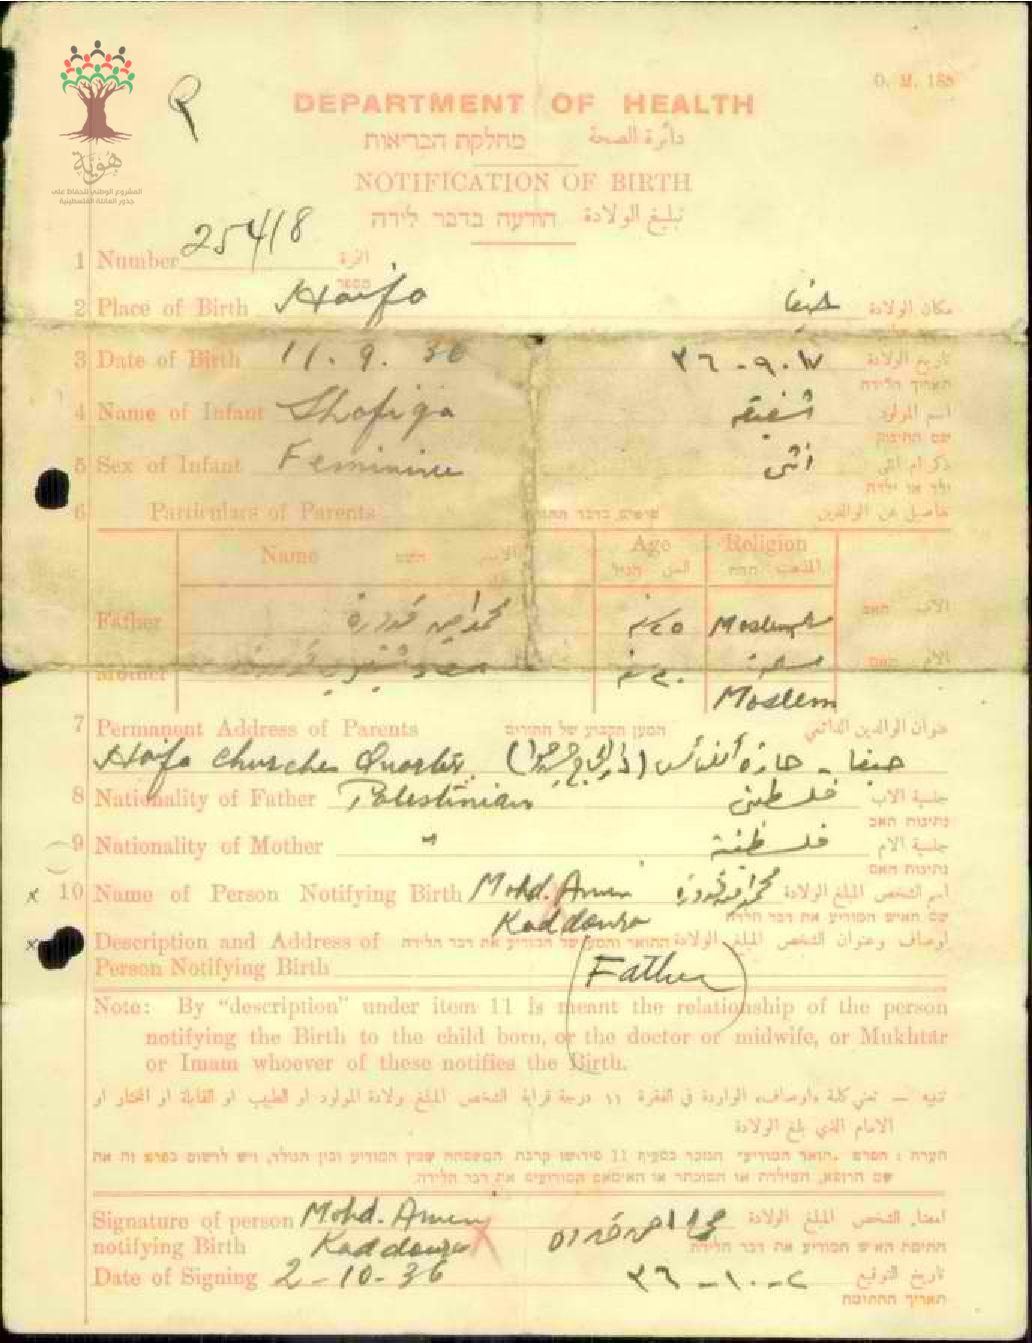 هُوِيَّة
المشروع الوطني للحفاظ على
جذور العائلة الفلسطينية
G. M. 188
DEPARTMENT OF HEALTH
מחלקת הבריאות دائرة الصحة
NOTIFICATION OF BIRTH
הודעה בדבר לידה تبليغ الولادة
1 Number 25418 النمرة
מספר
2 Place of Birth Haifa حيفا مكان الولادة
3 Date of Birth 11. 9. 36 ٣٦ - ٩ - تاريخ الولادة
תאריך הלידה
4 Name of Infant Shafiqa شفيقه اسم المولود
שם התינוק
5 Sex of Infant Feminine انثى ذكر ام انثى
ילד או ילדה
6 Particulars of Parents פרטים בדבר ההורים تفاصيل عن الوالدين
Name השם الاسم Age הגיל السن Religion הדת المذهب
Father محمد امين قدورة ٤٥ سنه Moslem مسلم האב الاب
Mother ٣٠ سنه مسلمة האם الام
Moslem
7 Permanent Address of Parents המען הקבוע של ההורים عنوان الوالدين الدائمي
Haifa Churches Quarter حيفا - حارة الكنائس
8 Nationality of Father Palestinian فلسطيني جنسية الاب
נתינות האב
9 Nationality of Mother " فلسطينية جنسية الام
נתינות האם
x 10 Name of Person Notifying Birth Mohd. Amen محمد امين قدورة اسم الشخص المبلغ الولادة
Kaddoura שם האיש המודיע את דבר הלידה
x Description and Address of התואר והמען של המודיע את דבר הלידה اوصاف وعنوان الشخص المبلغ الولادة
Person Notifying Birth (Father)
Note: By "description" under item 11 is meant the relationship of the person
notifying the Birth to the child born, or the doctor or midwife, or Mukhtar
or Imam whoever of these notifies the Birth.
تنبيه — تعني كلة «اوصاف» الواردة في الفقرة ١١ درجة قرابة الشخص المبلغ ولادة المولود او الطبيب او القابلة او المختار او
الامام الذي بلغ الولادة
הערה : הנזכר בסעיף 11 פירושו קרבת המשפחה שבין המודיע ובין הנולד, ויש לרשום את
שם הרופא, המילדת או המוכתר או האימאם המודיעים את דבר הלידה.
Signature of person Mohd. Amen محمد امين قدوره امضاء الشخص المبلغ الولادة
notifying Birth Kaddoura חתימת האיש המודיע את דבר הלידה
Date of Signing 2-10-36 ٣٦ - ١٠ - ٢ تاريخ التوقيع
תאריך החתימה